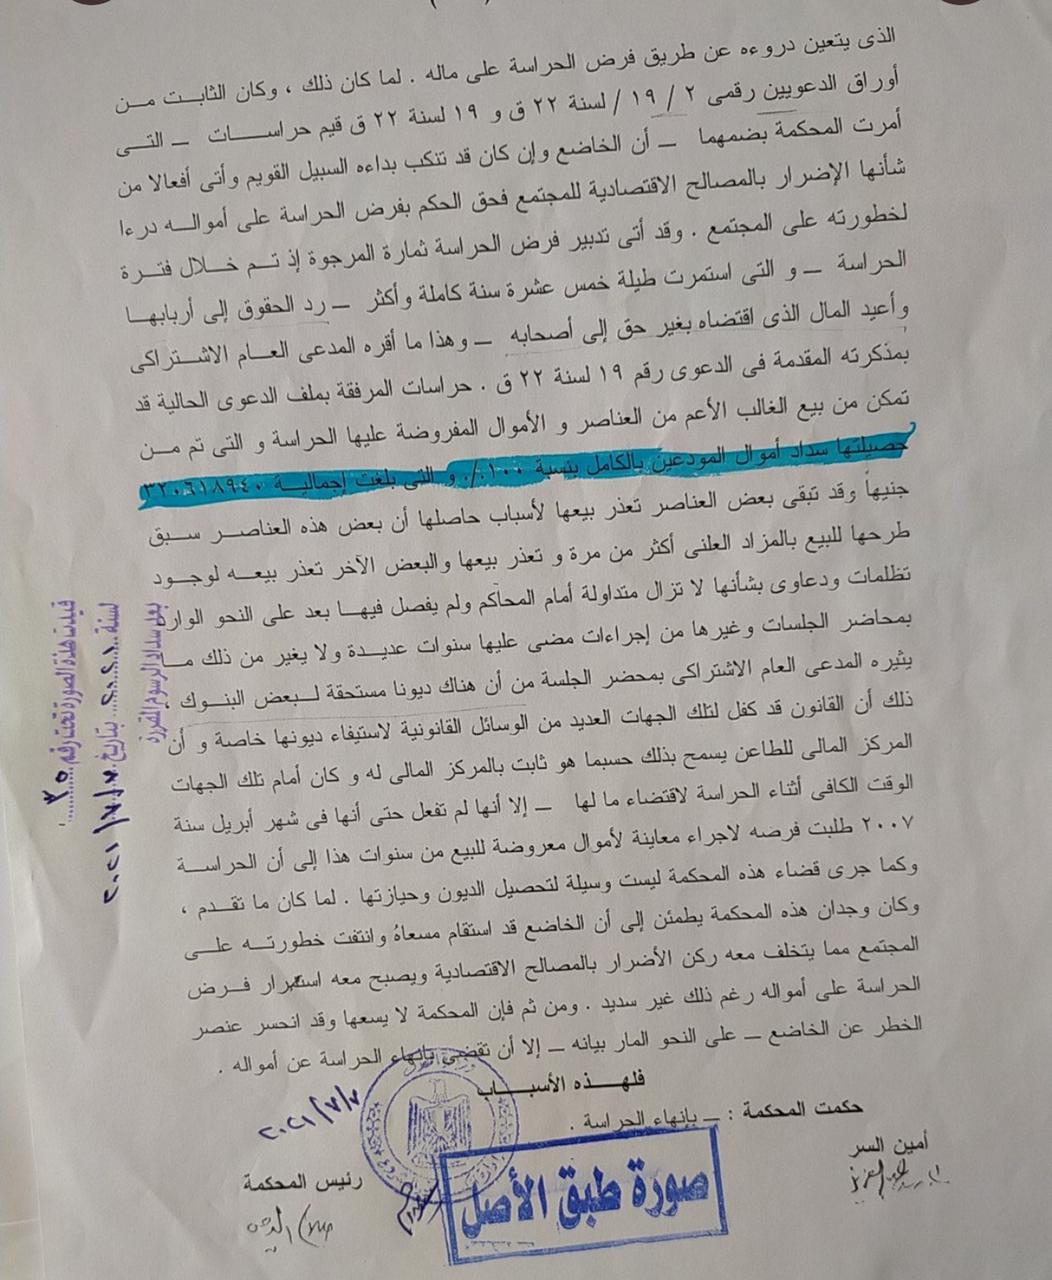 الذى يتعين دروءه عن طريق فرض الحراسة على ماله . لما كان ذلك ، وكان الثابت مـن
أوراق الدعويين رقمى ٢ / ١٩ / لسنة ٢٢ ق و ١٩ لسنة ٢٢ ق قيم حراسـات – التـى
أمرت المحكمة بضمهما – أن الخاضع وإن كان قد تنكب بداءه السبيل القويم وأتى أفعالا من
شأنها الإضرار بالمصالح الاقتصادية للمجتمع فحق الحكم بفرض الحراسة على أموالـه درءا
لخطورته على المجتمع . وقد أتى تدبير فرض الحراسة ثمارة المرجوة إذ تـم خـلال فتـرة
الحراسة – و التى استمرت طيلة خمس عشرة سنة كاملة وأكثر – رد الحقوق إلى أربابهـا
وأعيد المال الذى اقتضاه بغير حق إلى أصحابه – وهذا ما أقره المدعى العـام الاشـتراكى
بمذكرته المقدمة فى الدعوى رقم ١٩ لسنة ٢٢ ق . حراسات المرفقة بملف الدعوى الحالية قد
تمكن من بيع الغالب الأعم من العناصر و الأموال المفروضة عليها الحراسة و التى تم مـن
حصيلتها سداد أموال المودعين بالكامل بنسبة ١٠٠٪ و التى بلغت إجماليـة ٣٢٠٦١٨٩٤٠
جنيهاً وقد تبقى بعض العناصر تعذر بيعها لأسباب حاصلها أن بعض هذه العناصـر سـبق
طرحها للبيع بالمزاد العلنى أكثر من مرة و تعذر بيعها والبعض الآخر تعذر بيعـه لوجـود
تظلمات ودعاوى بشأنها لا تزال متداولة أمام المحاكم ولم يفصل فيهـا بعد على النحو الوارد
بمحاضر الجلسات وغيرها من إجراءات مضى عليها سنوات عديـدة ولا يغير من ذلك مـا
يثيره المدعى العام الاشتراكى بمحضر الجلسة من أن هناك ديونا مستحقة لـبعض البنـوك ،
ذلك أن القانون قد كفل لتلك الجهات العديد من الوسائل القانونية لاستيفاء ديونها خاصة و أن
المركز المالى للطاعن يسمح بذلك حسبما هو ثابت بالمركز المالى له و كان أمام تلك الجهات
الوقت الكافى أثناء الحراسة لاقتضاء ما لها – إلا أنها لم تفعل حتى أنها فى شهر أبريل سنة
٢٠٠٧ طلبت فرضه لاجراء معاينة لأموال معروضة للبيع من سنوات هذا إلى أن الحراسـة
وكما جرى قضاء هذه المحكمة ليست وسيلة لتحصيل الديون وحيازتها . لما كان ما تقـدم ،
وكان وجدان هذه المحكمة يطمئن إلى أن الخاضع قد استقام مسعاهُ وانتفت خطورتـه علـى
المجتمع مما يتخلف معه ركن الأضرار بالمصالح الاقتصادية ويصبح معه استمرار فـرض
الحراسة على أمواله رغم ذلك غير سديد . ومن ثم فإن المحكمة لا يسعها وقد انحسر عنصر
الخطر عن الخاضع – على النحو المار بيانه – إلا أن تقضى بإنهاء الحراسة عن أمواله .
فلهـذه الأسبـاب
حكمت المحكمة : – بإنهاء الحراسة .
أمين السر
رئيس المحكمة
٢٠٢١/٧/٧
صورة طبق الأصل
قيدت هذة الصورة تحت رقم ٣٥
لسنة ٢٠٢١ بتاريخ ٢٠٢١/٧/٧
بعد سداد الرسوم المقررة